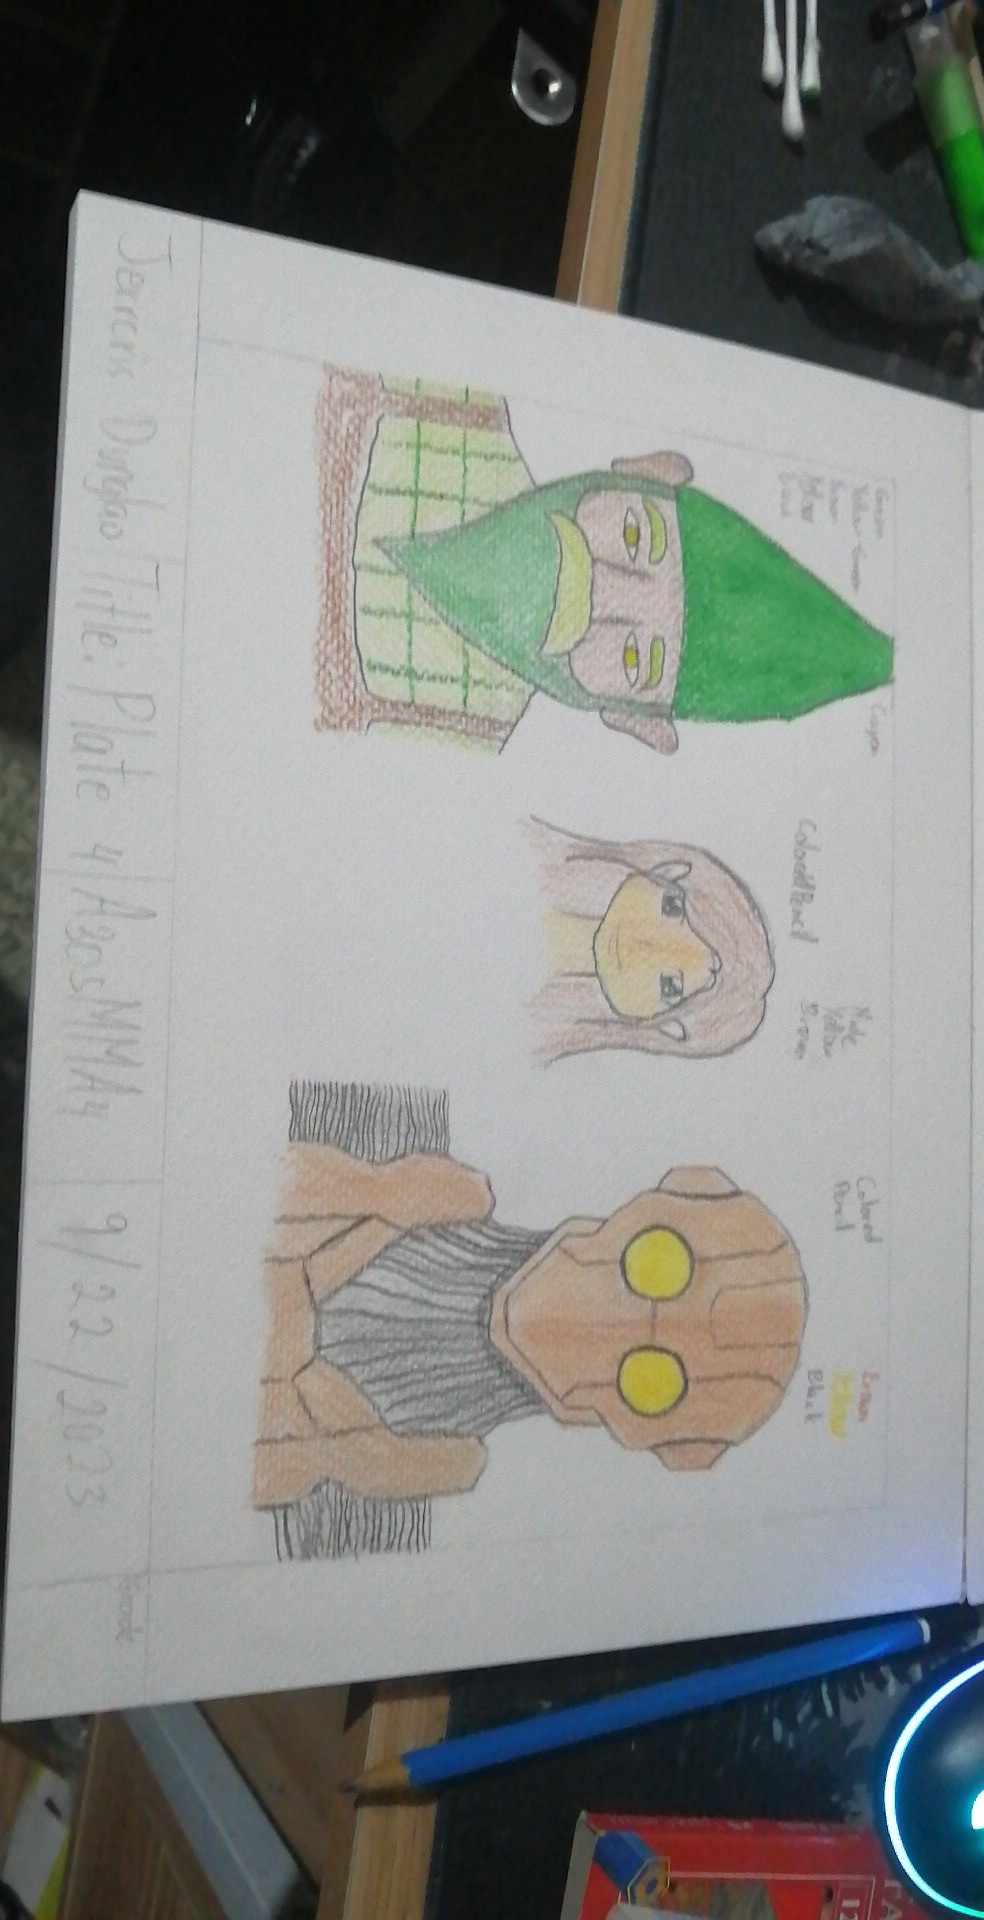 Green
Yellow-Green
Brown
Yellow
Crayon
Colored Pencil
Nude
Yellow
Brown
Colored
Pencil
Brown
Yellow
Black
Durglao
Title: Plate 4
A305MMA4
9/22/2023
Grade
12